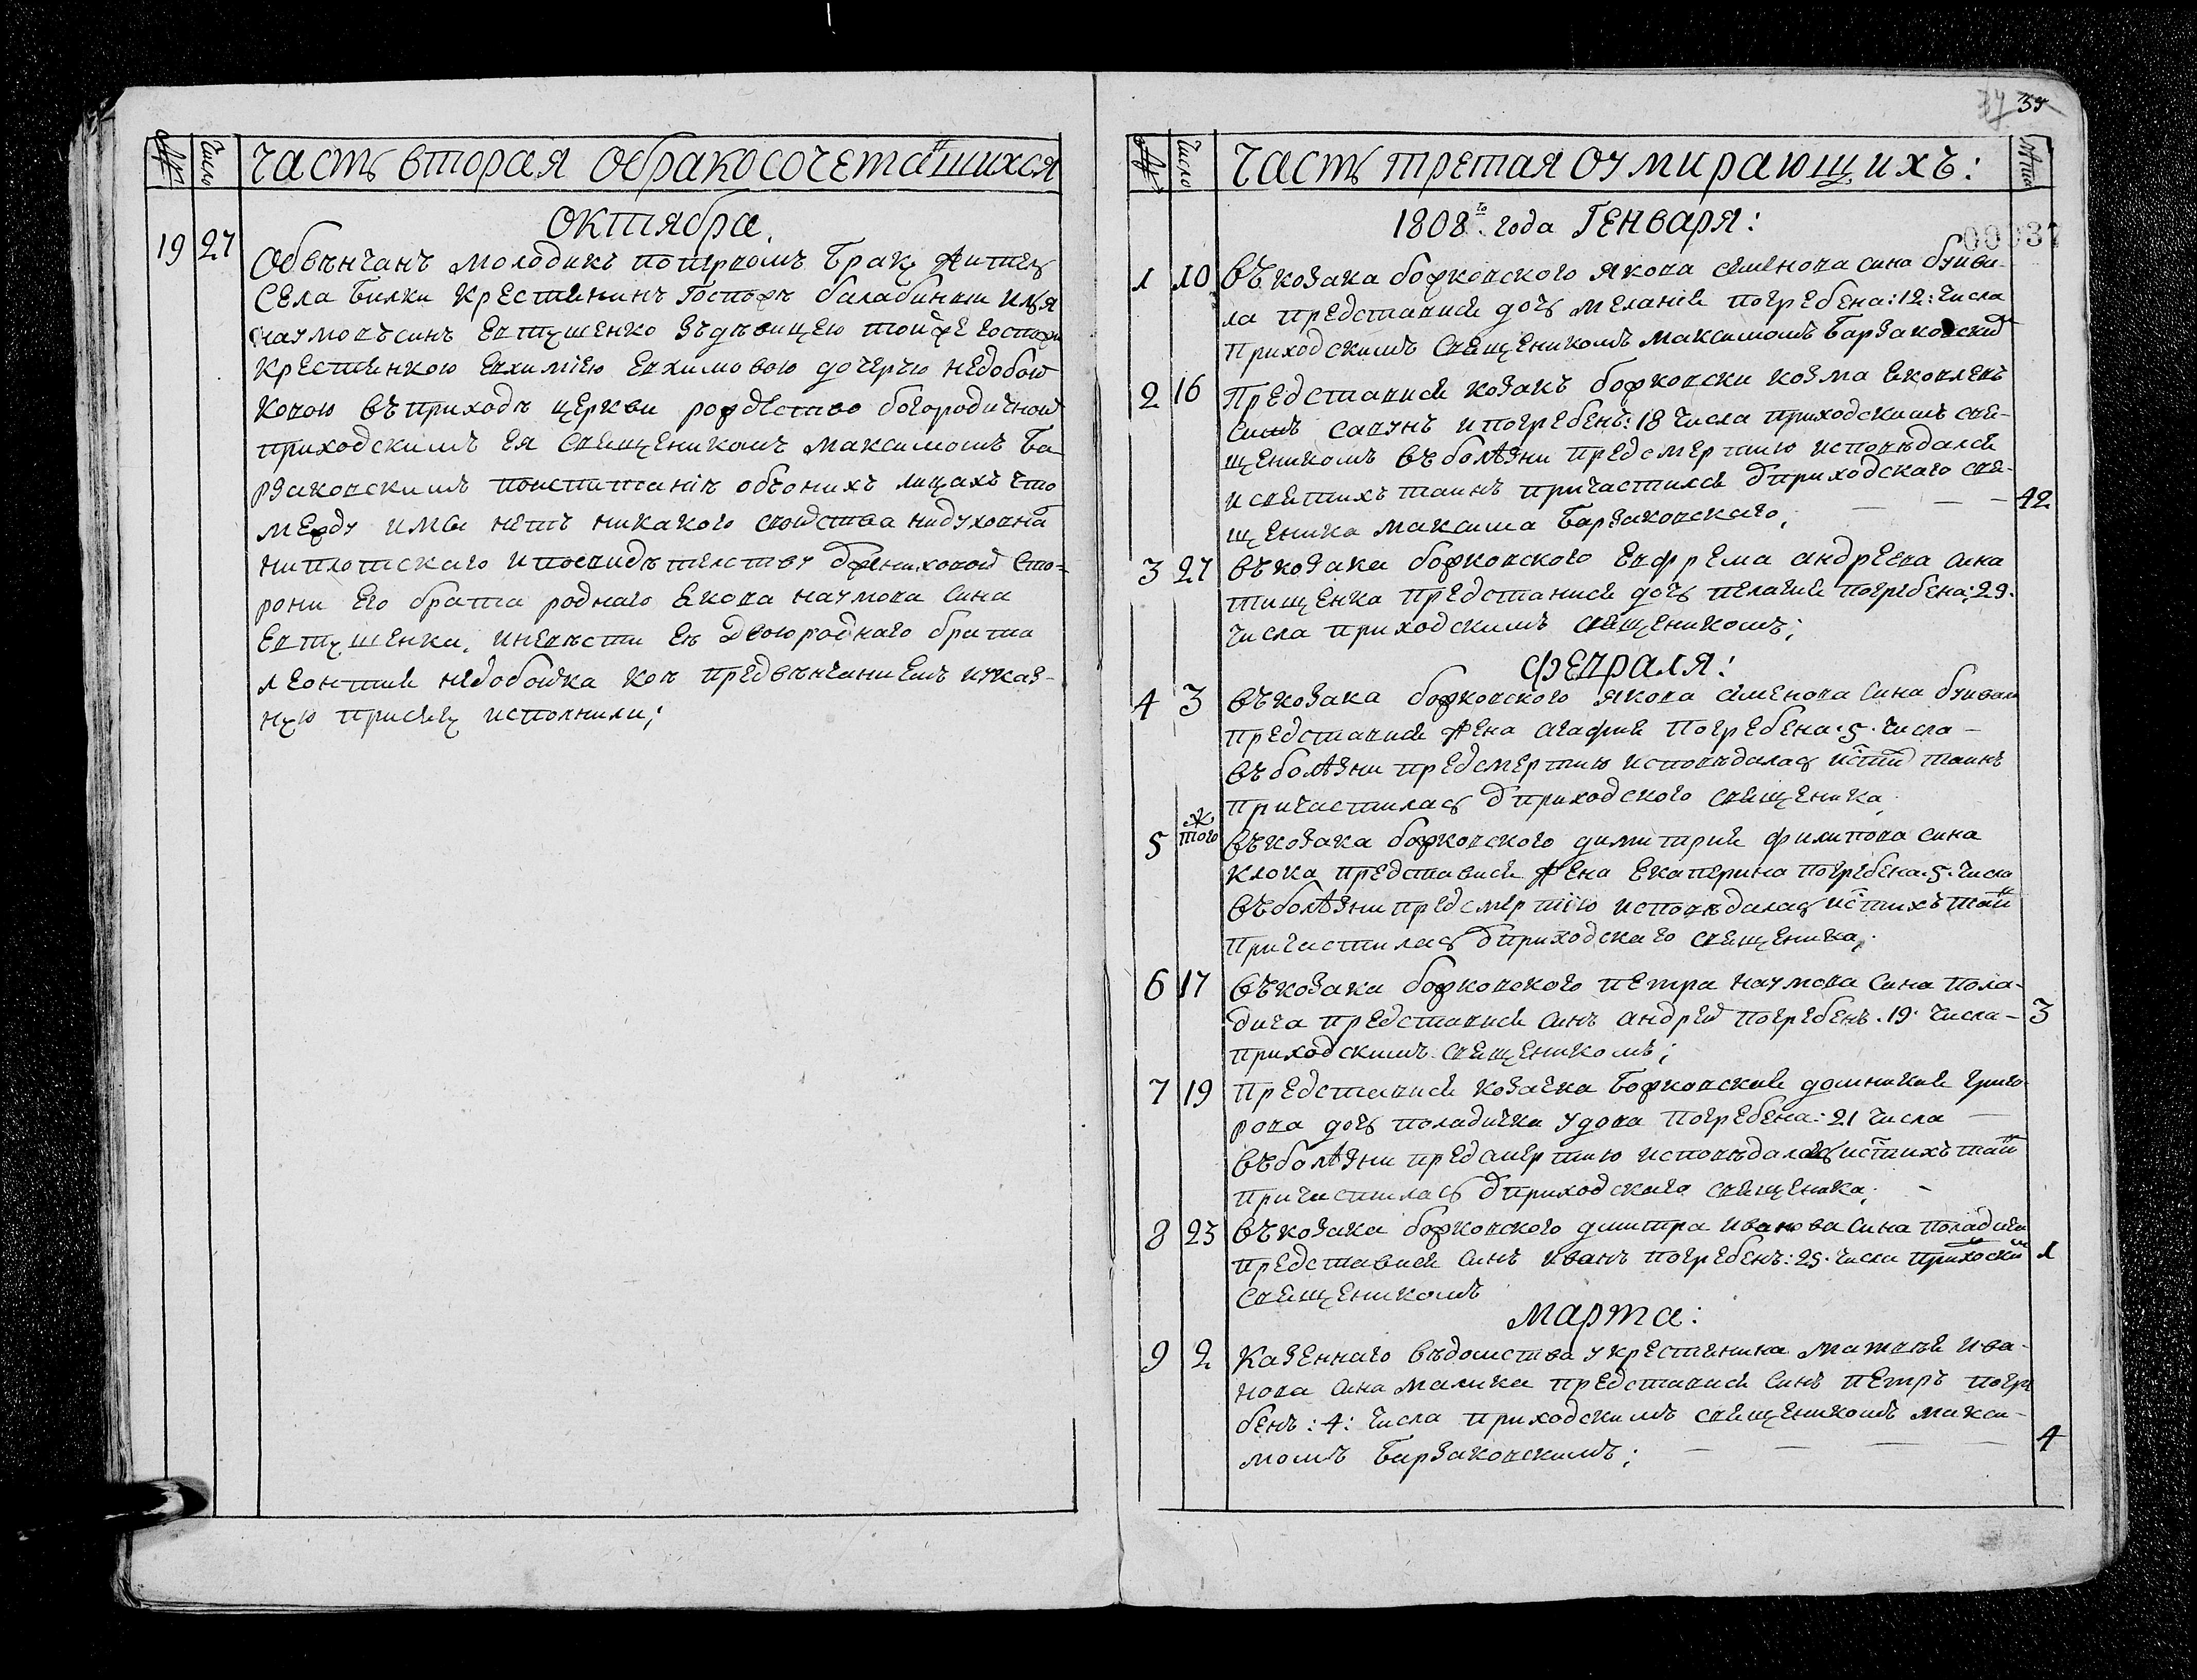 №
Число
Часть вторая обракосочетавшихся
октября
19 27 Обвѣнчанъ молодикъ попервомъ Браку житель
Села Билки Крестянинъ Госпожъ балабиныи Илья
наумовъ синъ Евтушенко зъдѣвицею тойже госпожи
Крестянкою Евхиміею Евхимовою дочерью недобой
ковою въприходѣ церкви рождество богородичной
приходскимъ ея священикомъ максимомъ Ба-
рзаковскимъ поиспитаніи обоонихъ лицахъ что
между ими нетъ никакого свойства нидуховна
ниплотскаго ипосвидѣтелству ѿжениховой сто-
рони Его брата роднаго Якова наумова Сина
Евтушенка, иневѣсти Ея двоюроднаго брата
леонтия недобойка кои предвѣнчаниемъ иуказ-
ную присягу исполнили;
37 34
№
Число
Часть третая оумирающихъ:
лѣта
1808го года Генваря:
00037
1 10 Въкозака божковского Якова семенова сина буйва-
ла преставися дочь меланія погребена: 12: числа
Приходскимъ Священикомъ максимомъ Барзаковским
2 16 Преставися козакъ божковски козма Яковлевъ
синъ савунъ ипогребенъ: 18 числа приходскимъ свя-
щеникомъ въболѣзни предсмертию исповѣдался
исвятихъ таинъ причастился ѿприходскаго свя-
щеника максима Барзаковскаго; — — 42
3 27 Въкозака божковского Евфрема андреева сина
тищенка преставися дочь пелагия погребена: 29.
числа приходскимъ священикомъ;
февраля:
4 3 Въкозака божковского Якова семенова сина буйвала
преставися жена агафия погребена. 5. числа —
въболѣзни предсмертию исповѣдалась истих таинъ
причастилась ѿприходского священика;
5 тогож Въкозака божковского димитрия филипова сина
клока преставися жена Екатерина погребена. 5. числа
въболѣзни предсмертію исповѣдалась истихъ таин
причастилась ѿприходскаго священика;
6 17 Въкозака божковского петра наумова сина пола-
дича преставися синъ андрей погребенъ. 19. числа — 3
приходскимъ священикомъ;
7 19 Преставися козачка Божковская домникия григо-
рова дочь поладичка удова погребена: 21 числа —
въболѣзни предсмертию исповѣдалась истихъ таин
причастилась ѿприходскаго священика; —
8 23 Въкозака божковского дмитра иванова сина поладича
преставися синъ иванъ погребенъ: 25. числа приходским 1
священикомъ
марта:
9 2 Казеннаго вѣдомства укрестянина матвѣя ива-
нова сина малика преставися синъ петръ погре
бенъ: 4: числа приходскимъ священикомъ макси-
момъ Барзаковскимъ; — — — — 4